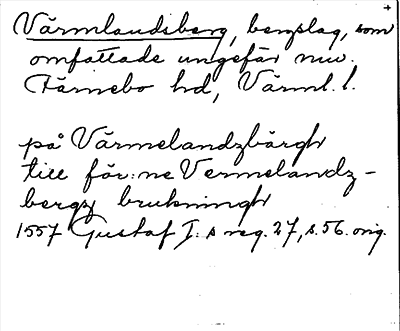 Värmlandsberg, bergslag, som
omfattade ungefär nuv.
Färnebo hd, Värml. l.
på Värmelandzbärgh
till för:ne Vermelandz-
bergz brukningh
1557 Gustaf I:s reg. 27, s. 56. orig.